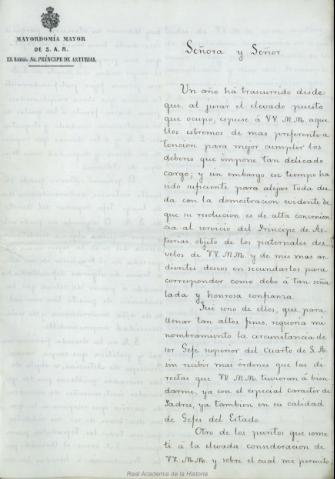 MAYORDOMÍA MAYOR
DE S. A. R.
EL SERMO. SR. PRÍNCIPE DE ASTURIAS.
Señora y Señor
Un año há trascurrido desde
que, al jurar el elevado puesto
que ocupo, espuse á VV. MM. aque
llos estremos de mas preferente a
tencion para mejor cumplir los
deberes que impone tan delicado
cargo; y sin embargo ese tiempo ha
sido suficiente para alejar toda du
da con la demostracion evidente de
que su resolucion es de alta convenien
cia al servicio del Príncipe de As
turias objeto de los paternales des
velos de VV. MM. y de mis mas ar
dientes deseos en secundarlos para
corresponder como debo á tan seña
lada y honrosa confianza.
Fué uno de ellos, que para
llenar tan altos fines, requeria mi
nombramiento la circunstancia de
ser Gefe superior del Cuarto de S. A.
sin recibir mas órdenes que las di
rectas que VV. MM. tuvieran á bien
darme, ya con el especial caracter de
Padres, ya tambien en su calidad
de Gefes del Estado.
Otro de los puntos que some
tí á la elevada consideracion de
VV. MM. y sobre el cual me permito
Real Academia de la Historia